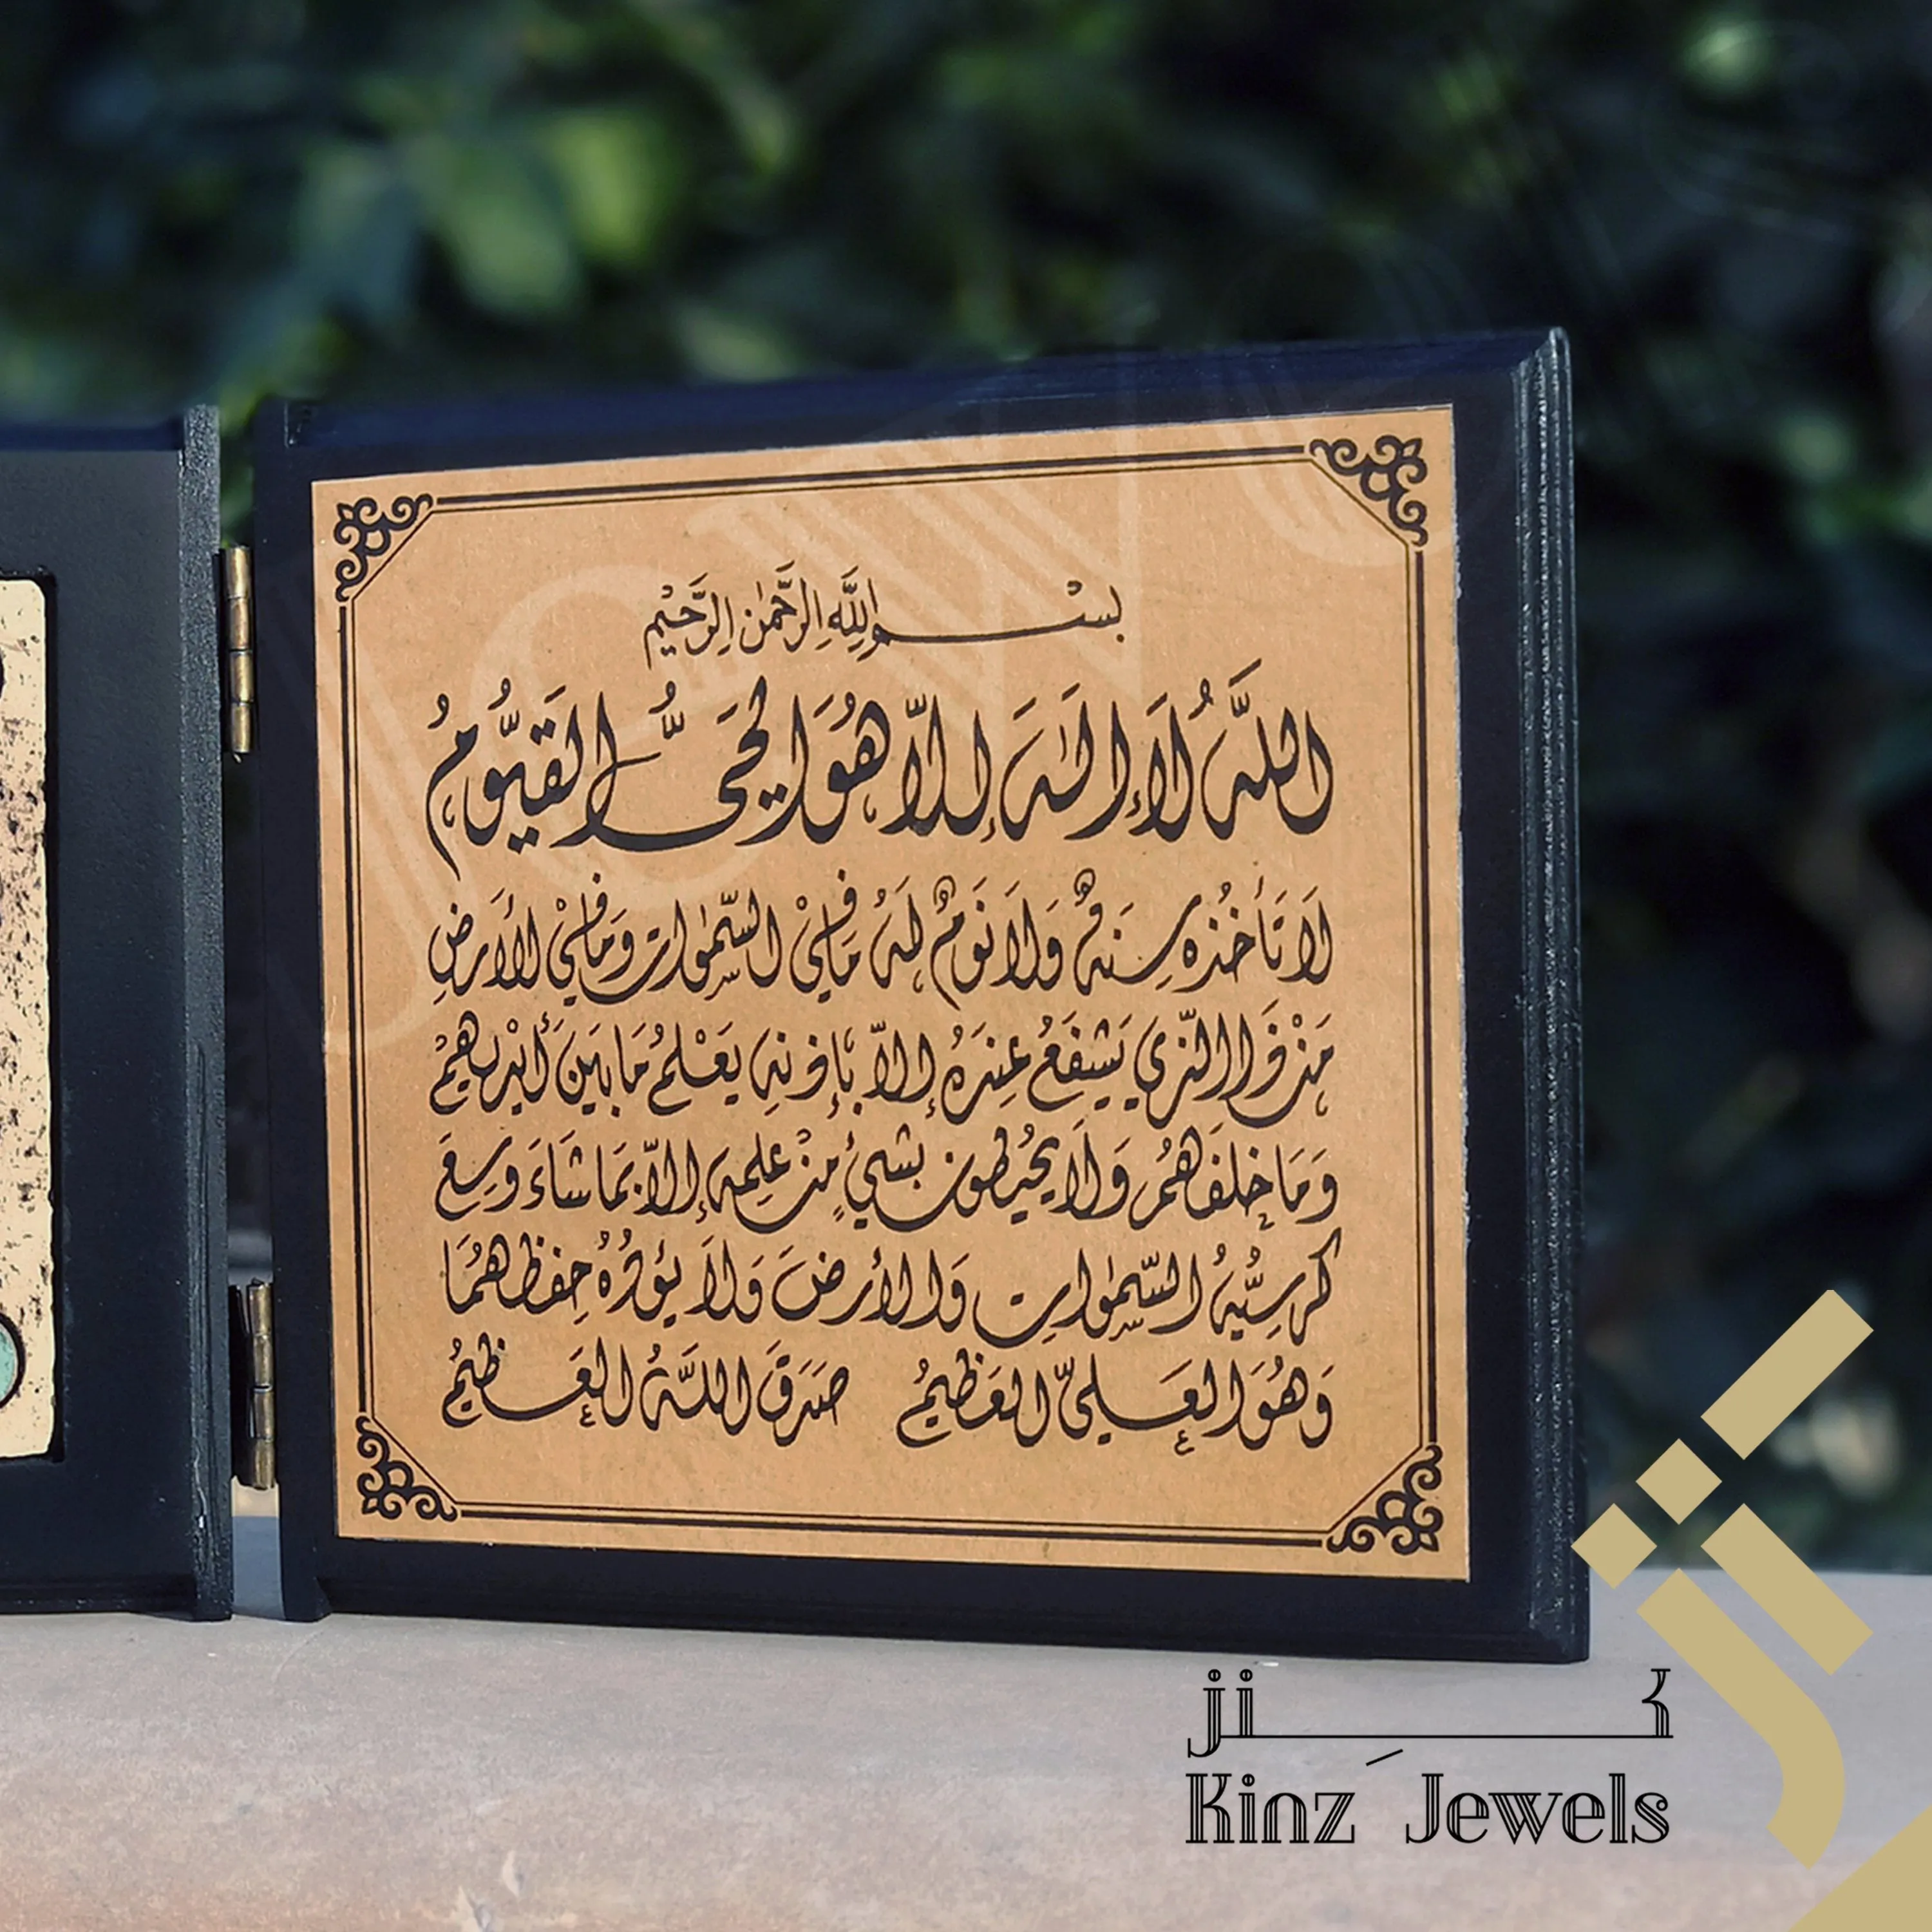 بِسْمِ اللَّهِ الرَّحْمٰنِ الرَّحِيْمِ
اللَّهُ لَا إِلَٰهَ إِلَّا هُوَ الْحَيُّ الْقَيُّومُ
لَا تَأْخُذُهُ سِنَةٌ وَلَا نَوْمٌ لَهُ مَا فِيْ السَّمٰوَاتِ وَمَا فِيْ الْأَرَضِ
مَنْ ذَا الَّذِي يَشْفَعُ عِنْدَهُ إِلَّا بِإِذْنِهِ يَعْلَمُ مَا بَيْنَ أَيْدِيهِمْ
وَمَا خَلْفَهُمْ وَلَا يُحِيْطُونَ بِشَيْءٍ مِنْ عِلْمِهِ إِلَّا بِمَا شَاءَ وَسِعَ
كُرْسِيُّهُ السَّمٰوَاتِ وَالْأَرْضَ وَلَا يَؤُدُهُ حِفْظُهُمَا
وَهُوَ الْعَلِيُّ الْعَظِيْمُ صَدَقَ اللَّهُ الْعَظِيْمُ
كنز
Kinz Jewels